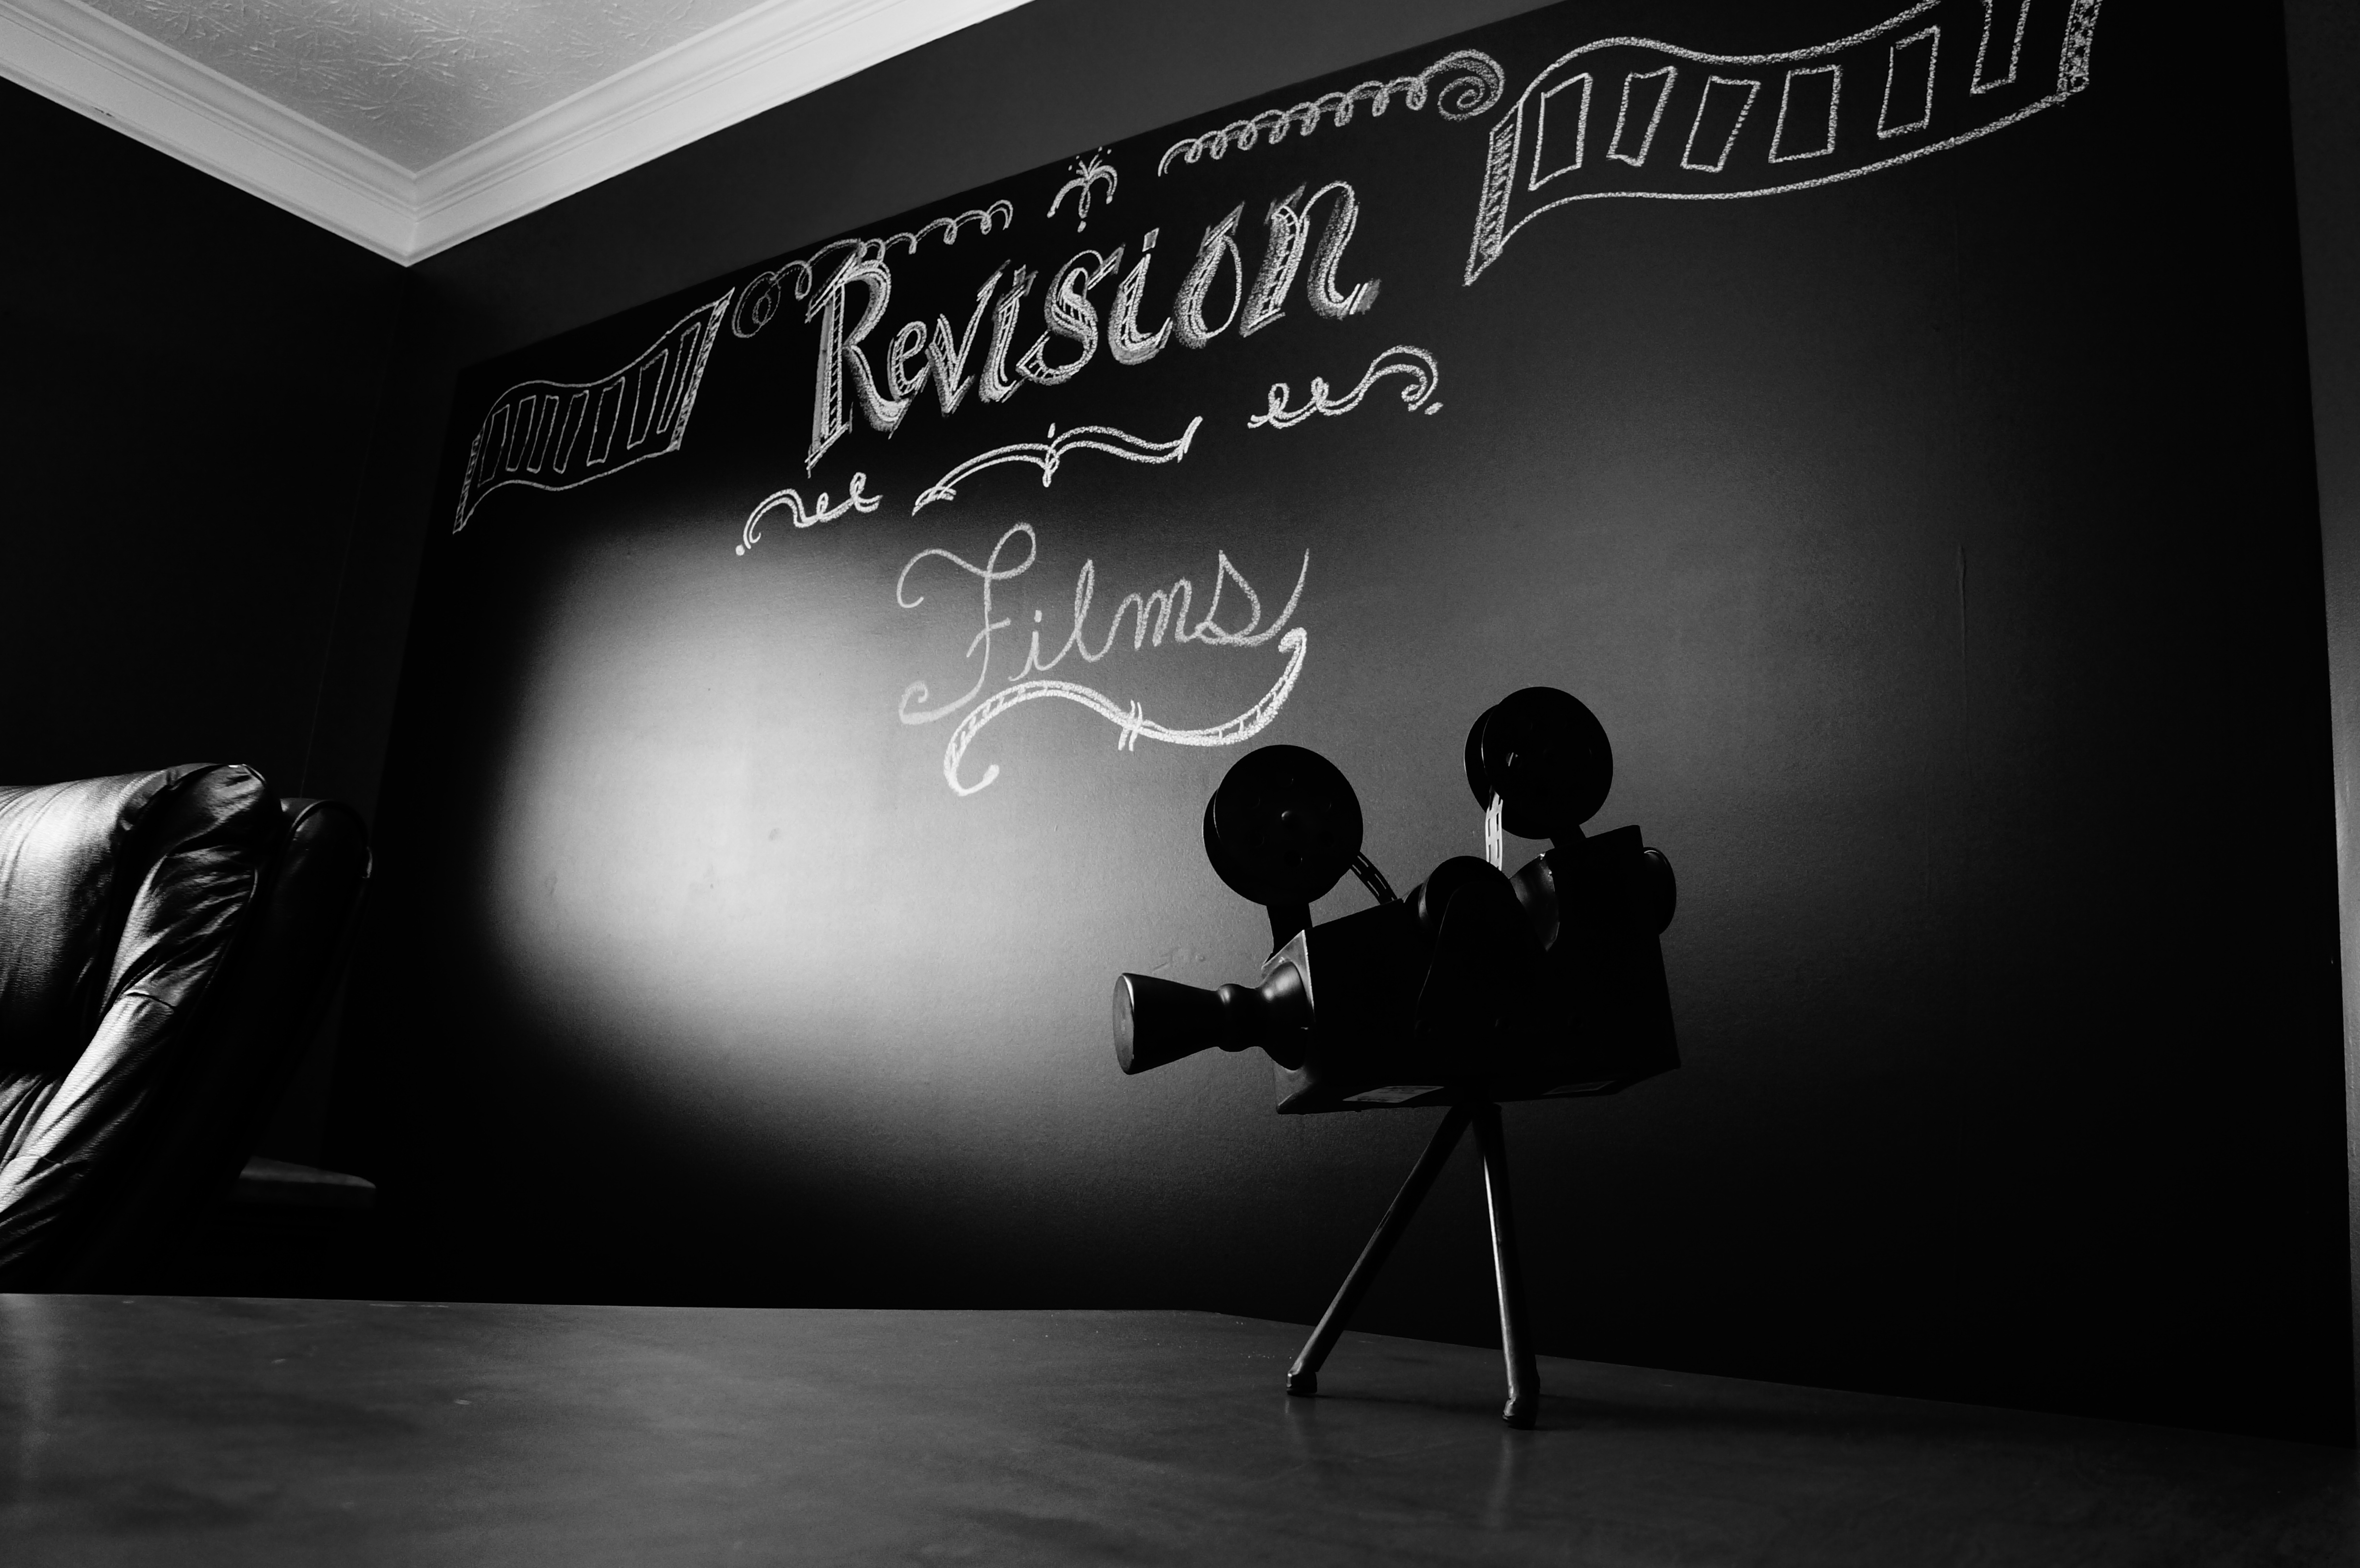 Revision
Films